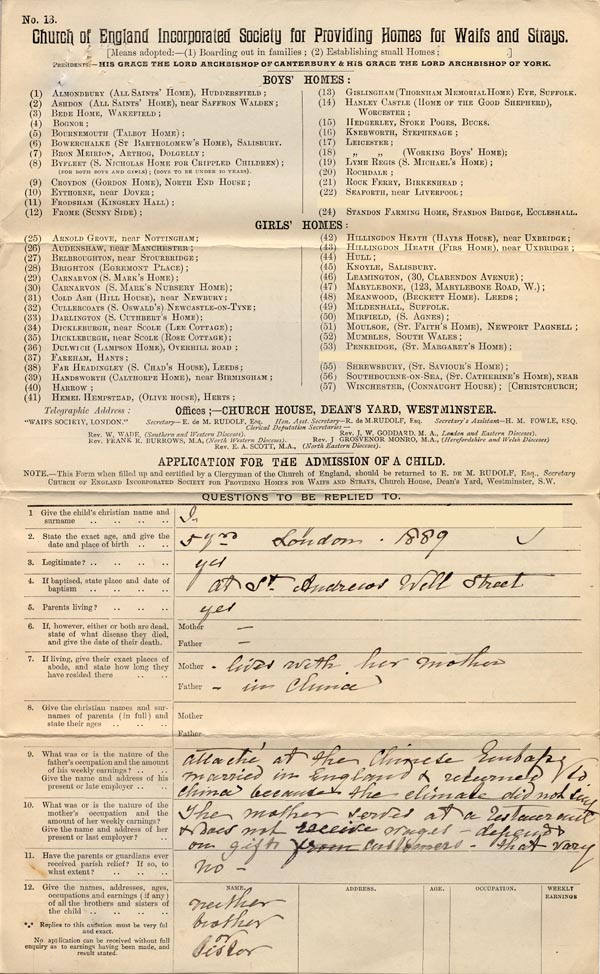 No. 13.
Church of England Incorporated Society for Providing Homes for Waifs and Strays.
[Means adopted:—(1) Boarding out in families; (2) Establishing small Homes; .]
Presidents:—HIS GRACE THE LORD ARCHBISHOP OF CANTERBURY & HIS GRACE THE LORD ARCHBISHOP OF YORK.
BOYS' HOMES:
(1) Almondbury (All Saints' Home), Huddersfield;
(2) Ashdon (All Saints' Home), near Saffron Walden;
(3) Bede Home, Wakefield;
(4) Bognor;
(5) Bournemouth (Talbot Home);
(6) Bowerchalke (St Bartholomew's Home), Salisbury.
(7) Bron Meirion, Arthog, Dolgelly;
(8) Byfleet (S. Nicholas Home for Crippled Children);
(FOR BOTH BOYS AND GIRLS); (BOYS TO BE UNDER 10 YEARS).
(9) Croydon (Gordon Home), North End House;
(10) Eythorne, near Dover;
(11) Frodsham (Kingsley Hall);
(12) Frome (Sunny Side);
(13) Gislingham (Thornham Memorial Home) Eye, Suffolk.
(14) Hanley Castle (Home of the Good Shepherd),
Worcester;
(15) Hedgerley, Stoke Poges, Bucks.
(16) Knebworth, Stephenage;
(17) Leicester;
(18) „ „ (Working Boys' Home);
(19) Lyme Regis (S. Michael's Home);
(20) Rochdale;
(21) Rock Ferry, Birkenhead;
(22) Seaforth, near Liverpool;
(24) Standon Farming Home, Standon Bridge, Eccleshall.
GIRLS' HOMES:
(25) Arnold Grove, near Nottingham;
(26) Audenshaw, near Manchester;
(27) Belbroughton, near Stourbridge;
(28) Brighton (Egremont Place);
(29) Carnarvon (S. Mark's Home);
(30) Carnarvon (S. Mark's Nursery Home);
(31) Cold Ash (Hill House), near Newbury;
(32) Cullercoats (S. Oswald's) Newcastle-on-Tyne;
(33) Darlington (S. Cuthbert's Home);
(34) Dickleburgh, near Scole (Lee Cottage);
(35) Dickleburgh, near Scole (Rose Cottage);
(36) Dulwich (Lampson Home), Overhill Road;
(37) Fareham, Hants;
(38) Far Headingley (S. Chad's House), Leeds;
(39) Handsworth (Calthorpe Home), near Birmingham;
(40) Harrow;
(41) Hemel Hempstead, (Olive House), Herts;
(42) Hillingdon Heath (Hayes House), near Uxbridge;
(43) Hillingdon Heath (Firs Home), near Uxbridge;
(44) Hull;
(45) Knoyle, Salisbury.
(46) Leamington, (30, Clarendon Avenue);
(47) Marylebone, (123, Marylebone Road, W.);
(48) Meanwood, (Beckett Home). Leeds;
(49) Mildenhall, Suffolk.
(50) Mirfield, (S. Agnes);
(51) Moulsoe, (St. Faith's Home), Newport Pagnell;
(52) Mumbles, South Wales;
(53) Penkridge, (St. Margaret's Home);
(55) Shrewsbury, (St. Saviour's Home);
(56) Southbourne-on-Sea, (St. Catherine's Home), near
(57) Winchester, (Connaught House); [Christchurch;
Telegraphic Address: Offices;—CHURCH HOUSE, DEAN'S YARD, WESTMINSTER.
"WAIFS SOCIETY, LONDON." Secretary—E. de M. RUDOLF, Esq. Hon. Asst. Secretary—R. de M. RUDOLF, Esq. Secretary's Assistant—H. M. FOWLE, ESQ.
Clerical Deputation Secretaries—
Rev. W. WADE, (Southern and Western Dioceses). Rev. J. W. GODDARD, M.A., London and Eastern Dioceses).
Rev. FRANK R. BURROWS, M.A, (North Western Dioceses). Rev. J GROSVENOR MONRO, M.A., (Herefordshire and Welsh Dioceses)
Rev. E. A. SCOTT, M.A., (North Eastern Dioceses).
APPLICATION FOR THE ADMISSION OF A CHILD.
NOTE.—This Form when filled up and certified by a Clergyman of the Church of England, should be returned to E. de M. RUDOLF, Esq., Secretary
Church of England Incorporated Society for Providing Homes for Waifs and Strays, Church House, Dean's Yard, Westminster, S.W.
QUESTIONS TO BE REPLIED TO.
1 Give the child's christian name and
surname
2. State the exact age, and give the
date and place of birth
5 yrs London. 1889
3. Legitimate?
yes
4. If baptised, state place and date of
baptism
at St. Andrews Well Street
5. Parents living?
yes
6. If, however, either or both are dead,
state of what disease they died,
and give the date of their death.
Mother —
Father —
7. If living, give their exact places of
abode, and state how long they
have resided there
Mother - lives with her mother
Father - in China
8. Give the christian names and sur-
names of parents (in full) and
state their ages
Mother
Father
9. What was or is the nature of the
father's occupation and the amount
of his weekly earnings?
Give the name and address of his
present or late employer
attaché at the Chinese Embassy
married in England & returned to
China because the climate did not suit
10. What was or is the nature of the
mother's occupation and the
amount of her weekly earnings?
Give the name and address of her
present or last employer?
The mother serves at a restaurant
& does not receive wages - depends
on gifts from customers - that vary
11. Have the parents or guardians ever
received parish relief? If so, to
what extent?
no -
12. Give the names, addresses, ages,
occupations and earnings (if any)
of all the brothers and sisters of
the child
*** Replies to this question must be very full
and exact.
No application can be received without full
enquiry as to earnings having been made, and
result stated.
NAME. ADDRESS. AGE. OCCUPATION. WEEKLY EARNINGS
neither
brother
or
sister